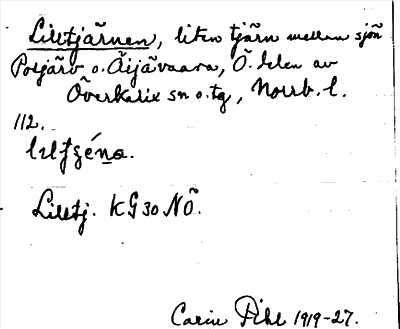 Lilltjärnen, liten tjärn mellan sjön
Potjärv o. Äijävaara, Ö. delen av
Överkalix sn o. tg, Norrb. l.
112.
Lilltj. KG 30 NÖ.
Carin Pihl 1919-27.